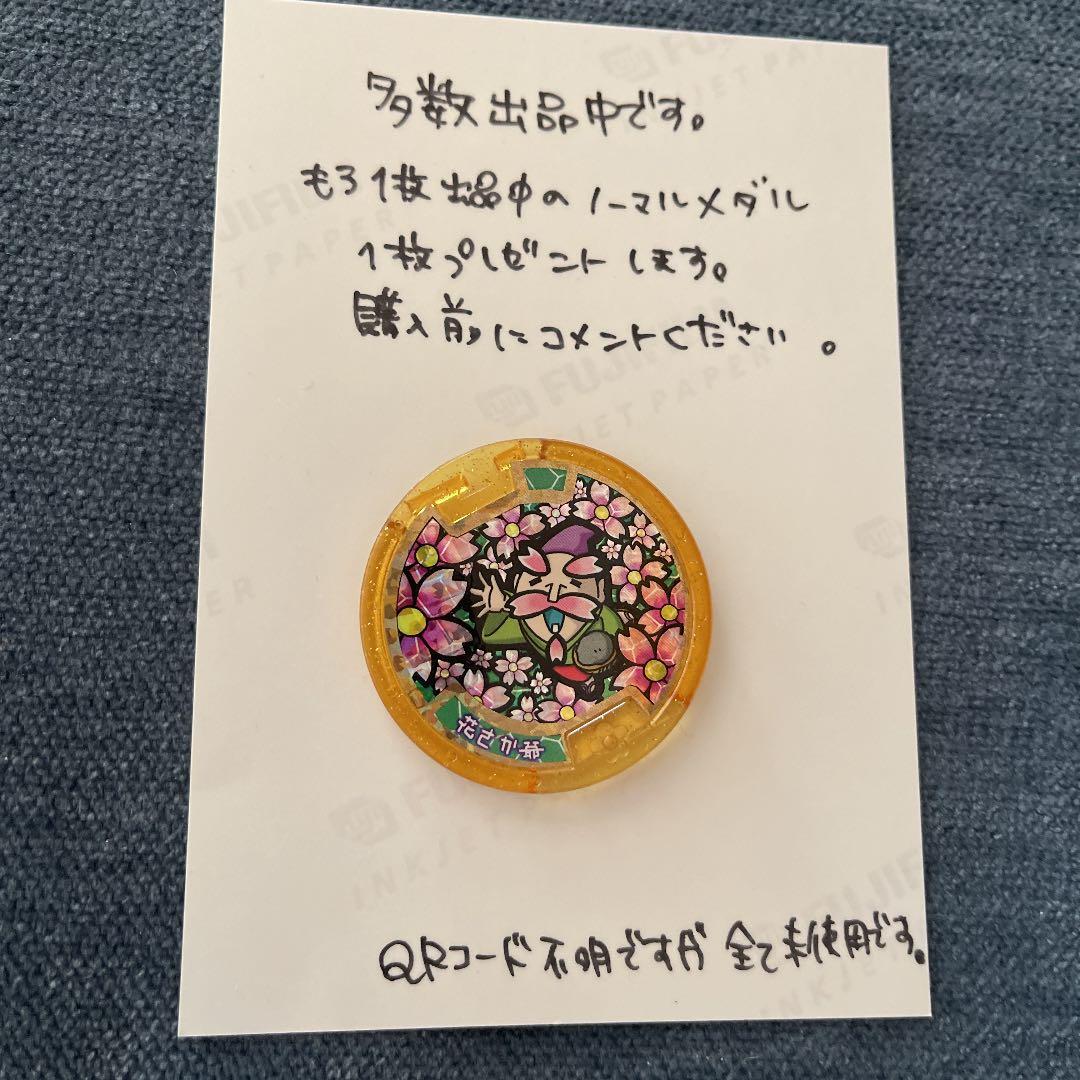 多数出品中です。
もう1枚出品中のノーマルメダル
1枚プレゼントします。
購入前にコメントください。
花さか爺
QRコード不明ですが全て未使用です。
FUJIFILM
INKJET PAPER